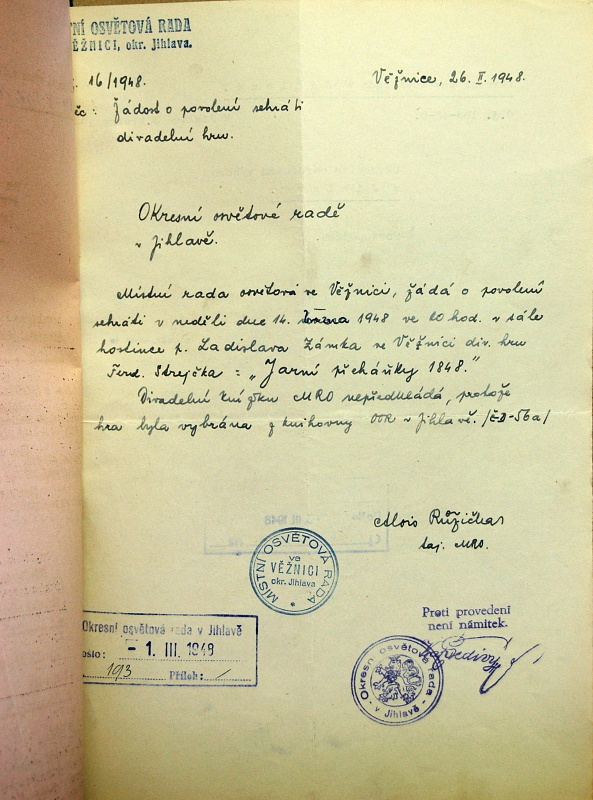 TNÍ OSVĚTOVÁ RADA
VĚŽNICI, okr. Jihlava.
16/1948.
Věžnice, 26. II. 1948.
ěc: Žádost o povolení sehráti
divadelní hru.
Okresní osvětové radě
v Jihlavě.
Místní rada osvětová ve Věžnici, žádá o povolení
sehráti v neděli dne 14. března 1948 ve 20 hod. v sále
hostince p. Ladislava Zámka ve Věžnici div. hru
Ferd. Strejčka: „Jarní přeháňky 1848."
Divadelní knížku MRO nepředkládá, protože
hra byla vybrána z knihovny OOR v Jihlavě. /č.D-56a/
Alois Růžička
taj. MRO.
MÍSTNÍ OSVĚTOVÁ RADA
ve
VĚŽNICI
okr. Jihlava
Proti provedení
není námitek.
Okresní osvětová rada v Jihlavě
Došlo: - 1. III. 1948
193 Příloh: /
Okresní osvětová rada
- v Jihlavě -